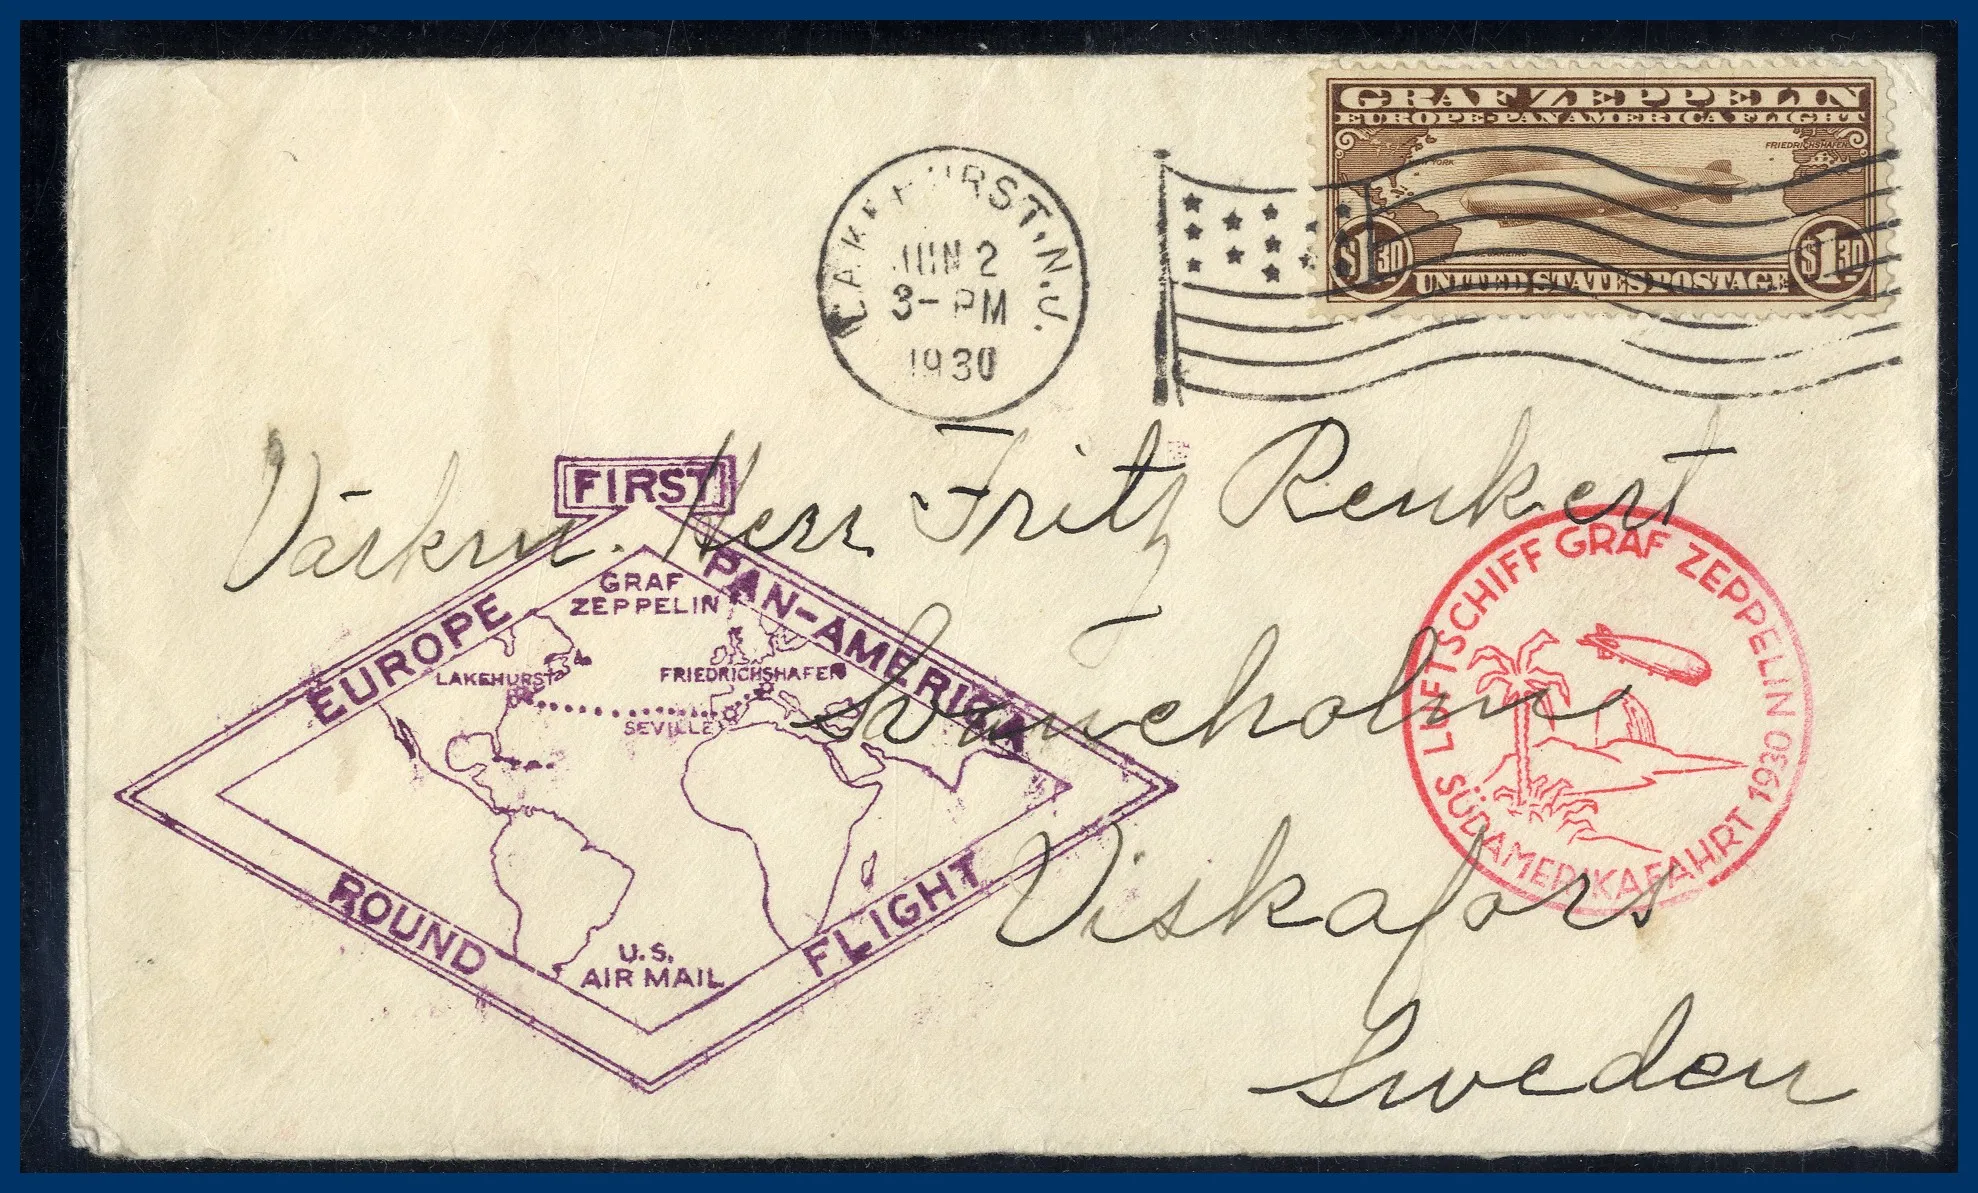 GRAF ZEPPELIN
EUROPE-PAN AMERICA FLIGHT
NEW YORK
FRIEDRICHSHAFEN
$1.30 $1.30
UNITED STATES POSTAGE
LAKEHURST, N.J.
JUN 2
3-PM
1930
Herr Fritz Renkert
Viskafors
Sweden
FIRST
EUROPE PAN-AMERICA
ROUND FLIGHT
GRAF
ZEPPELIN
LAKEHURST
FRIEDRICHSHAFEN
SEVILLE
U.S.
AIR MAIL
LUFTSCHIFF GRAF ZEPPELIN
SÜDAMERIKAFAHRT 1930